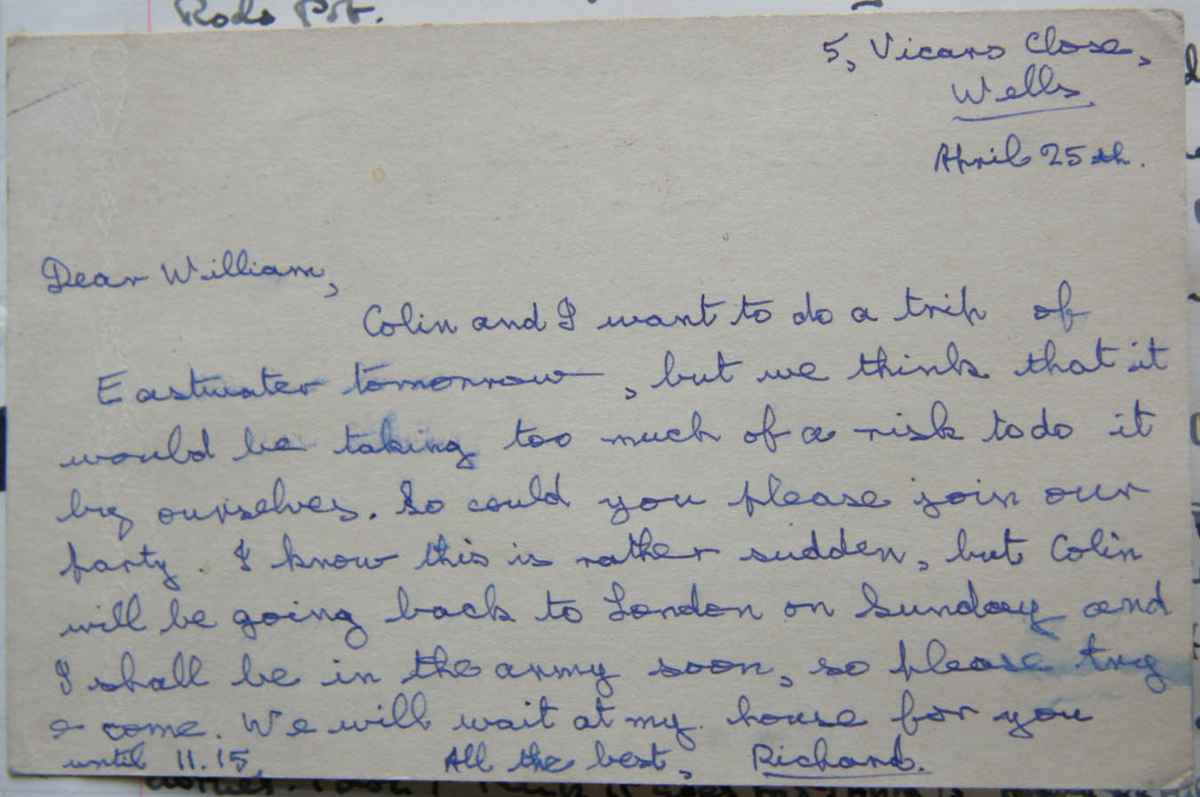 Rods Pot.
5, Vicars Close,
Wells
April 25th.
Dear William,
Colin and I want to do a trip of
Eastwater tomorrow, but we think that it
would be taking too much of a risk to do it
by ourselves. So could you please join our
party. I know this is rather sudden, but Colin
will be going back to London on Sunday and
I shall be in the army soon, so please try
& come. We will wait at my house for you
until 11.15.
All the best, Richard.